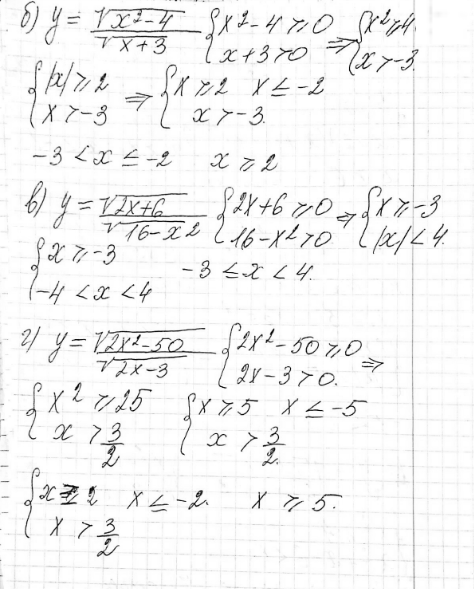 б) y = √(x²-4)/√(x+3) {x²-4 ⩾ 0 x+3 > 0 ⇒ {x² ⩾ 4 x > -3
{|x| ⩾ 2 x > -3 ⇒ {x ⩾ 2 x ≤ -2 x > -3.
-3 < x ≤ -2 x ⩾ 2
в) y = √(2x+6)/√(16-x2) {2x+6 ⩾ 0 16-x² > 0 ⇒ {x ⩾ -3 |x| < 4.
{x ⩾ -3 -4 < x < 4 -3 ≤ x < 4.
г) y = √(2x²-50)/√(2x-3) {2x²-50 ⩾ 0 2x-3 > 0. ⇒
{x² ⩾ 25 x > 3/2 {x ⩾ 5 x ≤ -5 x > 3/2.
{x 2 x ≤ -2. x ⩾ 5. x > 3/2